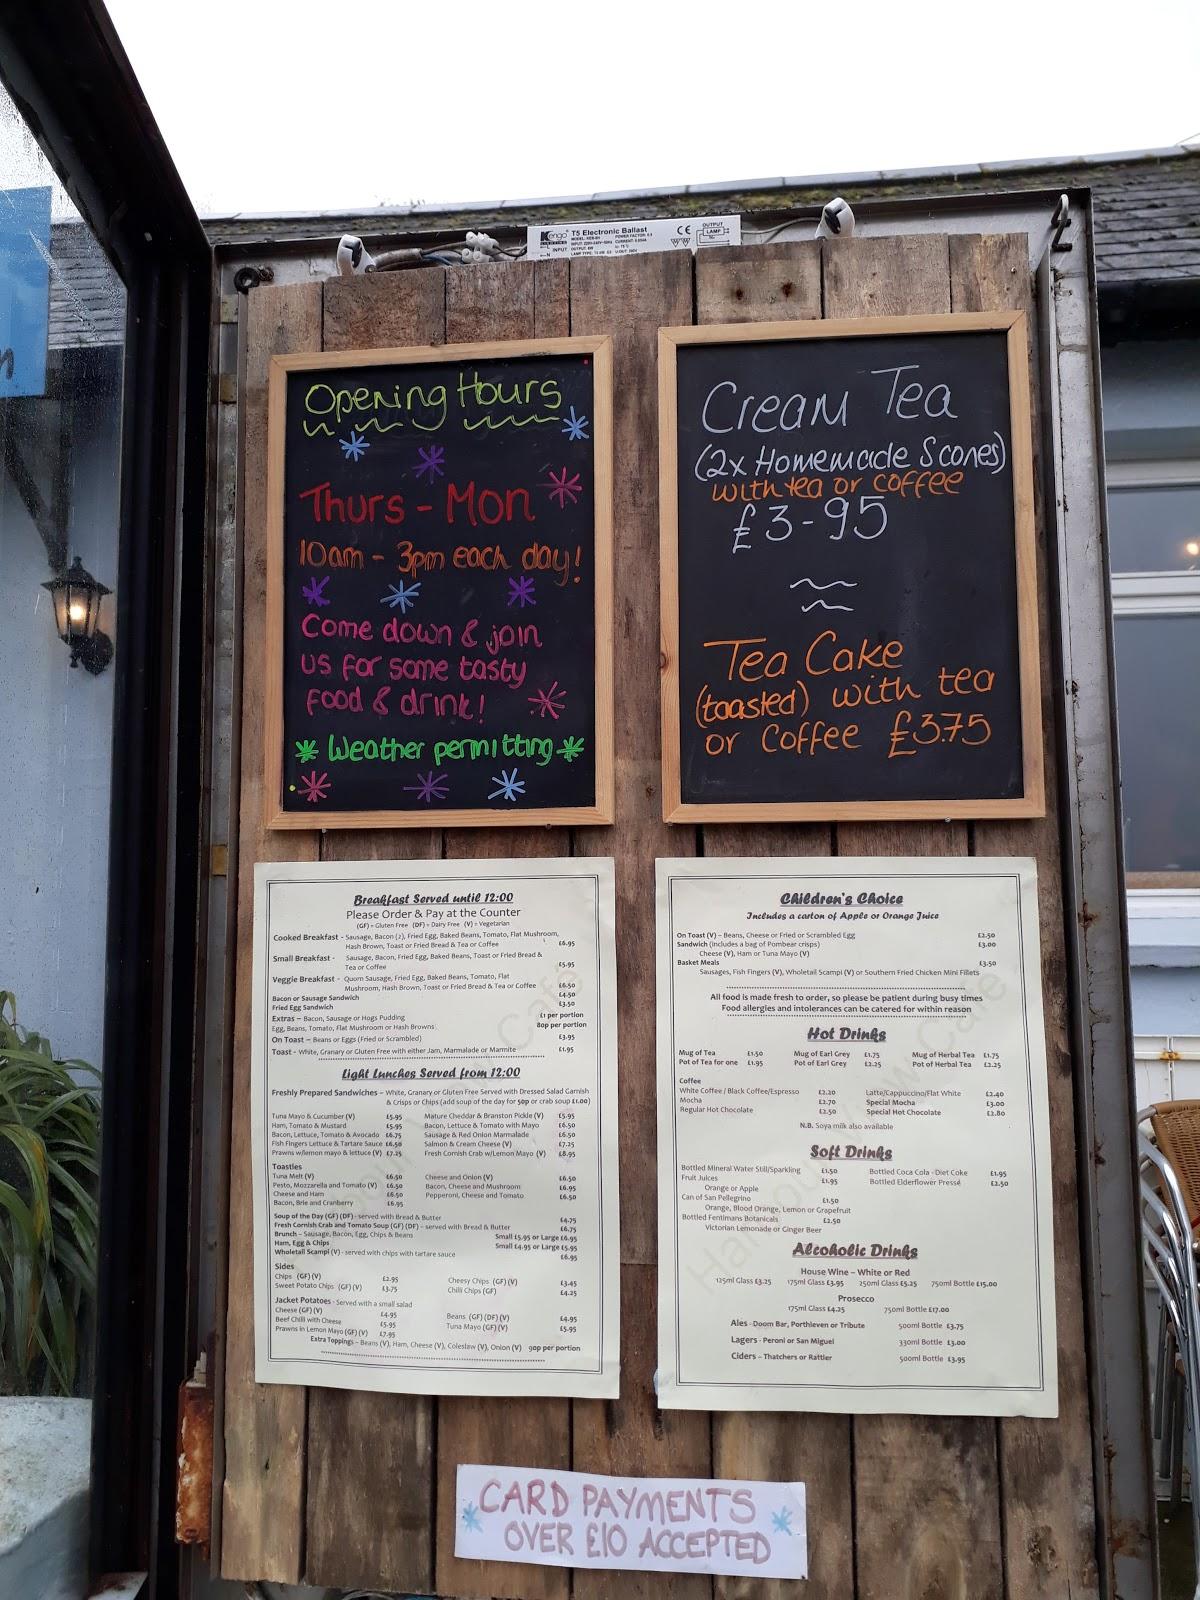 Kengo
LIGHTING
T5 Electronic Ballast
INPUT
OUTPUT
LAMP
Opening Hours
Thurs - Mon
10am - 3pm each day!
Come down & join
us for some tasty
food & drink!
* Weather permitting *
Cream Tea
(2x Homemade Scones)
with tea or coffee
£3-95
Tea Cake
(toasted) with tea
or coffee £3.75
Breakfast Served until 12:00
Please Order & Pay at the Counter
(GF) = Gluten Free (DF) = Dairy Free (V) = Vegetarian
Cooked Breakfast - Sausage, Bacon (2), Fried Egg, Baked Beans, Tomato, Flat Mushroom,
Hash Brown, Toast or Fried Bread & Tea or Coffee £6.95
Small Breakfast - Sausage, Bacon, Fried Egg, Baked Beans, Toast or Fried Bread &
Tea or Coffee £5.95
Veggie Breakfast - Quorn Sausage, Fried Egg, Baked Beans, Tomato, Flat
Mushroom, Hash Brown, Toast or Fried Bread & Tea or Coffee £6.50
Bacon or Sausage Sandwich £4.50
Fried Egg Sandwich £3.50
Extras - Bacon, Sausage or Hogs Pudding £1 per portion
Egg, Beans, Tomato, Flat Mushroom or Hash Browns 80p per portion
On Toast - Beans or Eggs (Fried or Scrambled) £3.95
Toast - White, Granary or Gluten Free with either Jam, Marmalade or Marmite £1.95
Light Lunches Served from 12:00
Freshly Prepared Sandwiches - White, Granary or Gluten Free Served with Dressed Salad Garnish
& Crisps or Chips (add soup of the day for 50p or crab soup £1.00)
Tuna Mayo & Cucumber (V) £5.95 Mature Cheddar & Branston Pickle (V) £5.95
Ham, Tomato & Mustard £5.95 Bacon, Lettuce & Tomato with Mayo £6.50
Bacon, Lettuce, Tomato & Avocado £6.75 Sausage & Red Onion Marmalade £6.50
Fish Fingers Lettuce & Tartare Sauce £6.50 Salmon & Cream Cheese (V) £7.25
Prawns w/lemon mayo & lettuce (V) £7.25 Fresh Cornish Crab w/Lemon Mayo (V) £8.95
Toasties
Tuna Melt (V) £6.50 Cheese and Onion (V) £6.50
Pesto, Mozzarella and Tomato (V) £6.50 Bacon, Cheese and Mushroom £6.95
Cheese and Ham £6.50 Pepperoni, Cheese and Tomato £6.50
Bacon, Brie and Cranberry £6.95
Soup of the Day (GF) (DF) - served with Bread & Butter £4.75
Fresh Cornish Crab and Tomato Soup (GF) (DF) - served with Bread & Butter £6.75
Brunch - Sausage, Bacon, Egg, Chips & Beans Small £5.95 or Large £6.95
Ham, Egg & Chips Small £4.95 or Large £5.95
Wholetail Scampi (V) - served with chips with tartare sauce £6.95
Sides
Chips (GF) (V) £2.95 Cheesy Chips (GF) (V) £3.45
Sweet Potato Chips (GF) (V) £3.75 Chilli Chips (GF) £4.25
Jacket Potatoes - Served with a small salad
Cheese (GF) (V) £4.95 Beans (GF) (DF) (V) £4.95
Beef Chilli with Cheese £5.95 Tuna Mayo (GF) (V) £5.95
Prawns in Lemon Mayo (GF) (V) £7.95
Extra Toppings - Beans (V), Ham, Cheese (V), Coleslaw (V), Onion (V) 90p per portion
Children's Choice
Includes a carton of Apple or Orange Juice
On Toast (V) – Beans, Cheese or Fried or Scrambled Egg £2.50
Sandwich (includes a bag of Pombear crisps) £3.00
Cheese (V), Ham or Tuna Mayo (V)
Basket Meals £3.50
Sausages, Fish Fingers (V), Wholetail Scampi (V) or Southern Fried Chicken Mini Fillets
All food is made fresh to order, so please be patient during busy times
Food allergies and intolerances can be catered for within reason
Hot Drinks
Mug of Tea £1.50 Mug of Earl Grey £1.75 Mug of Herbal Tea £1.75
Pot of Tea for one £1.95 Pot of Earl Grey £2.25 Pot of Herbal Tea £2.25
Coffee
White Coffee / Black Coffee/Espresso £2.20 Latte/Cappuccino/Flat White £2.40
Mocha £2.70 Special Mocha £3.00
Regular Hot Chocolate £2.50 Special Hot Chocolate £2.80
N.B. Soya milk also available
Soft Drinks
Bottled Mineral Water Still/Sparkling £1.50 Bottled Coca Cola - Diet Coke £1.95
Fruit Juices £1.95 Bottled Elderflower Pressé £2.50
Orange or Apple
Can of San Pellegrino £1.50
Orange, Blood Orange, Lemon or Grapefruit
Bottled Fentimans Botanicals £2.50
Victorian Lemonade or Ginger Beer
Alcoholic Drinks
House Wine – White or Red
125ml Glass £3.25 175ml Glass £3.95 250ml Glass £5.25 750ml Bottle £15.00
Prosecco
175ml Glass £4.25 750ml Bottle £17.00
Ales - Doom Bar, Porthleven or Tribute 500ml Bottle £3.75
Lagers - Peroni or San Miguel 330ml Bottle £3.00
Ciders – Thatchers or Rattler 500ml Bottle £3.95
CARD PAYMENTS
OVER £10 ACCEPTED